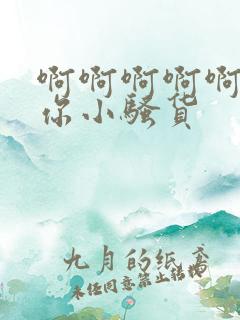 啊啊啊啊啊
你小骚货
九月的纸鸢
未经同意禁止转载